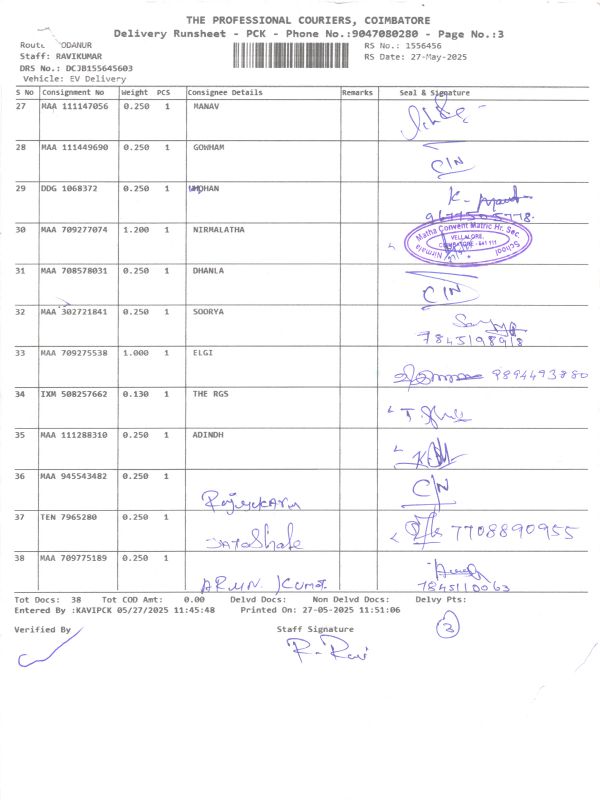 THE PROFESSIONAL COURIERS, COIMBATORE
Delivery Runsheet - PCK - Phone No.:9047080280 - Page No.:3
Route ODANUR RS No.: 1556456
Staff: RAVIKUMAR RS Date: 27-May-2025
DRS No.: DCJB155645603
Vehicle: EV Delivery
S No Consignment No Weight PCS Consignee Details Remarks Seal & Signature
27 MAA 111147056 0.250 1 MANAV
28 MAA 111449690 0.250 1 GOWHAM C/N
29 DDG 1068372 0.250 1 MOHAN K.
9677505778.
30 MAA 709277074 1.200 1 NIRMALATHA Nirmala Matha Convent Matric Hr. Sec. School
VELLALORE,
COIMBATORE - 641 111
31 MAA 708578031 0.250 1 DHANLA C/N
32 MAA 302721841 0.250 1 SOORYA
7845198918
33 MAA 709275538 1.000 1 ELGI 9894493880
34 IXM 508257662 0.130 1 THE RGS
35 MAA 111288310 0.250 1 ADINDH
36 MAA 945543482 0.250 1 C/N
37 TEN 7965280 0.250 1 7708890955
38 MAA 709775189 0.250 1
ARUN KUMAR 7845110063
Tot Docs: 38 Tot COD Amt: 0.00 Delvd Docs: Non Delvd Docs: Delvy Pts:
Entered By :KAVIPCK 05/27/2025 11:45:48 Printed On: 27-05-2025 11:51:06 3
Verified By Staff Signature
R. Ravi